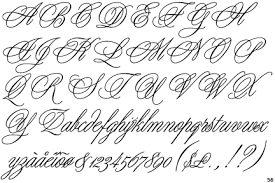 A B C D E F G H
I J K L M N O P
Q R S T U V W X
Y Z a b c d e f g h i j k l m n o p q r s t u v w x
y z à å é î õ ø & 1 2 3 4 5 6 7 8 9 0 ( $ £ . , ! ? )